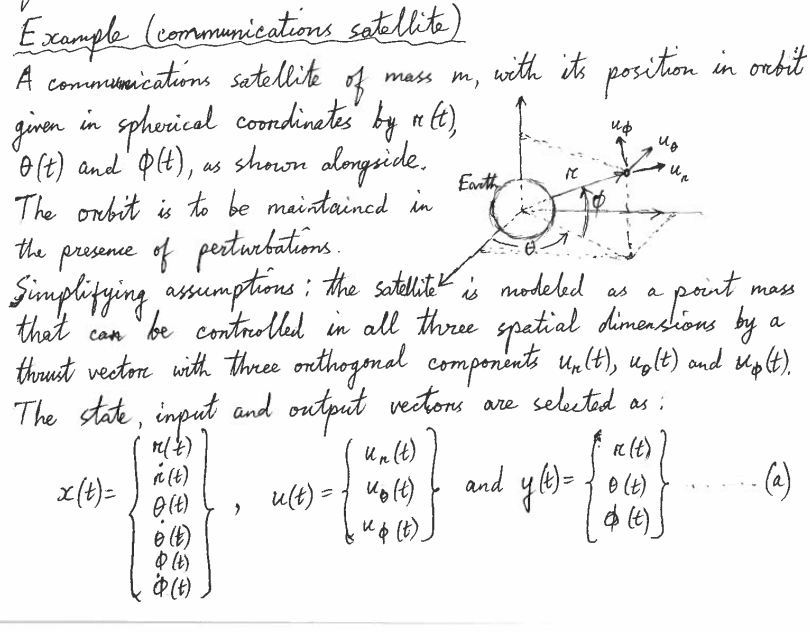 Example (communications satellite)
A communications satellite of mass m, with its position in orbit
given in spherical coordinates by r(t),
θ(t) and φ(t), as shown alongside.
The orbit is to be maintained in
the presence of perturbations.
Earth
r
φ
θ
u_φ
u_θ
u_r
Simplifying assumptions: the satellite is modeled as a point mass
that can be controlled in all three spatial dimensions by a
thrust vector with three orthogonal components u_r(t), u_θ(t) and u_φ(t).
The state, input and output vectors are selected as:
x(t) = { r(t) ṙ(t) θ(t) θ̇(t) φ(t) φ̇(t) }, u(t) = { u_r(t) u_θ(t) u_φ(t) } and y(t) = { r(t) θ(t) φ(t) } ........ (a)